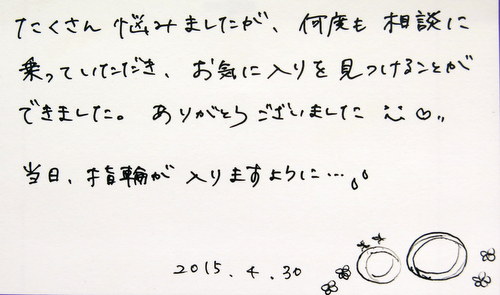 たくさん悩みましたが、何度も相談に
乗っていただき、お気に入りを見つけることが
できました。ありがとうございました
当日、指輪が入りますように…
2015.4.30